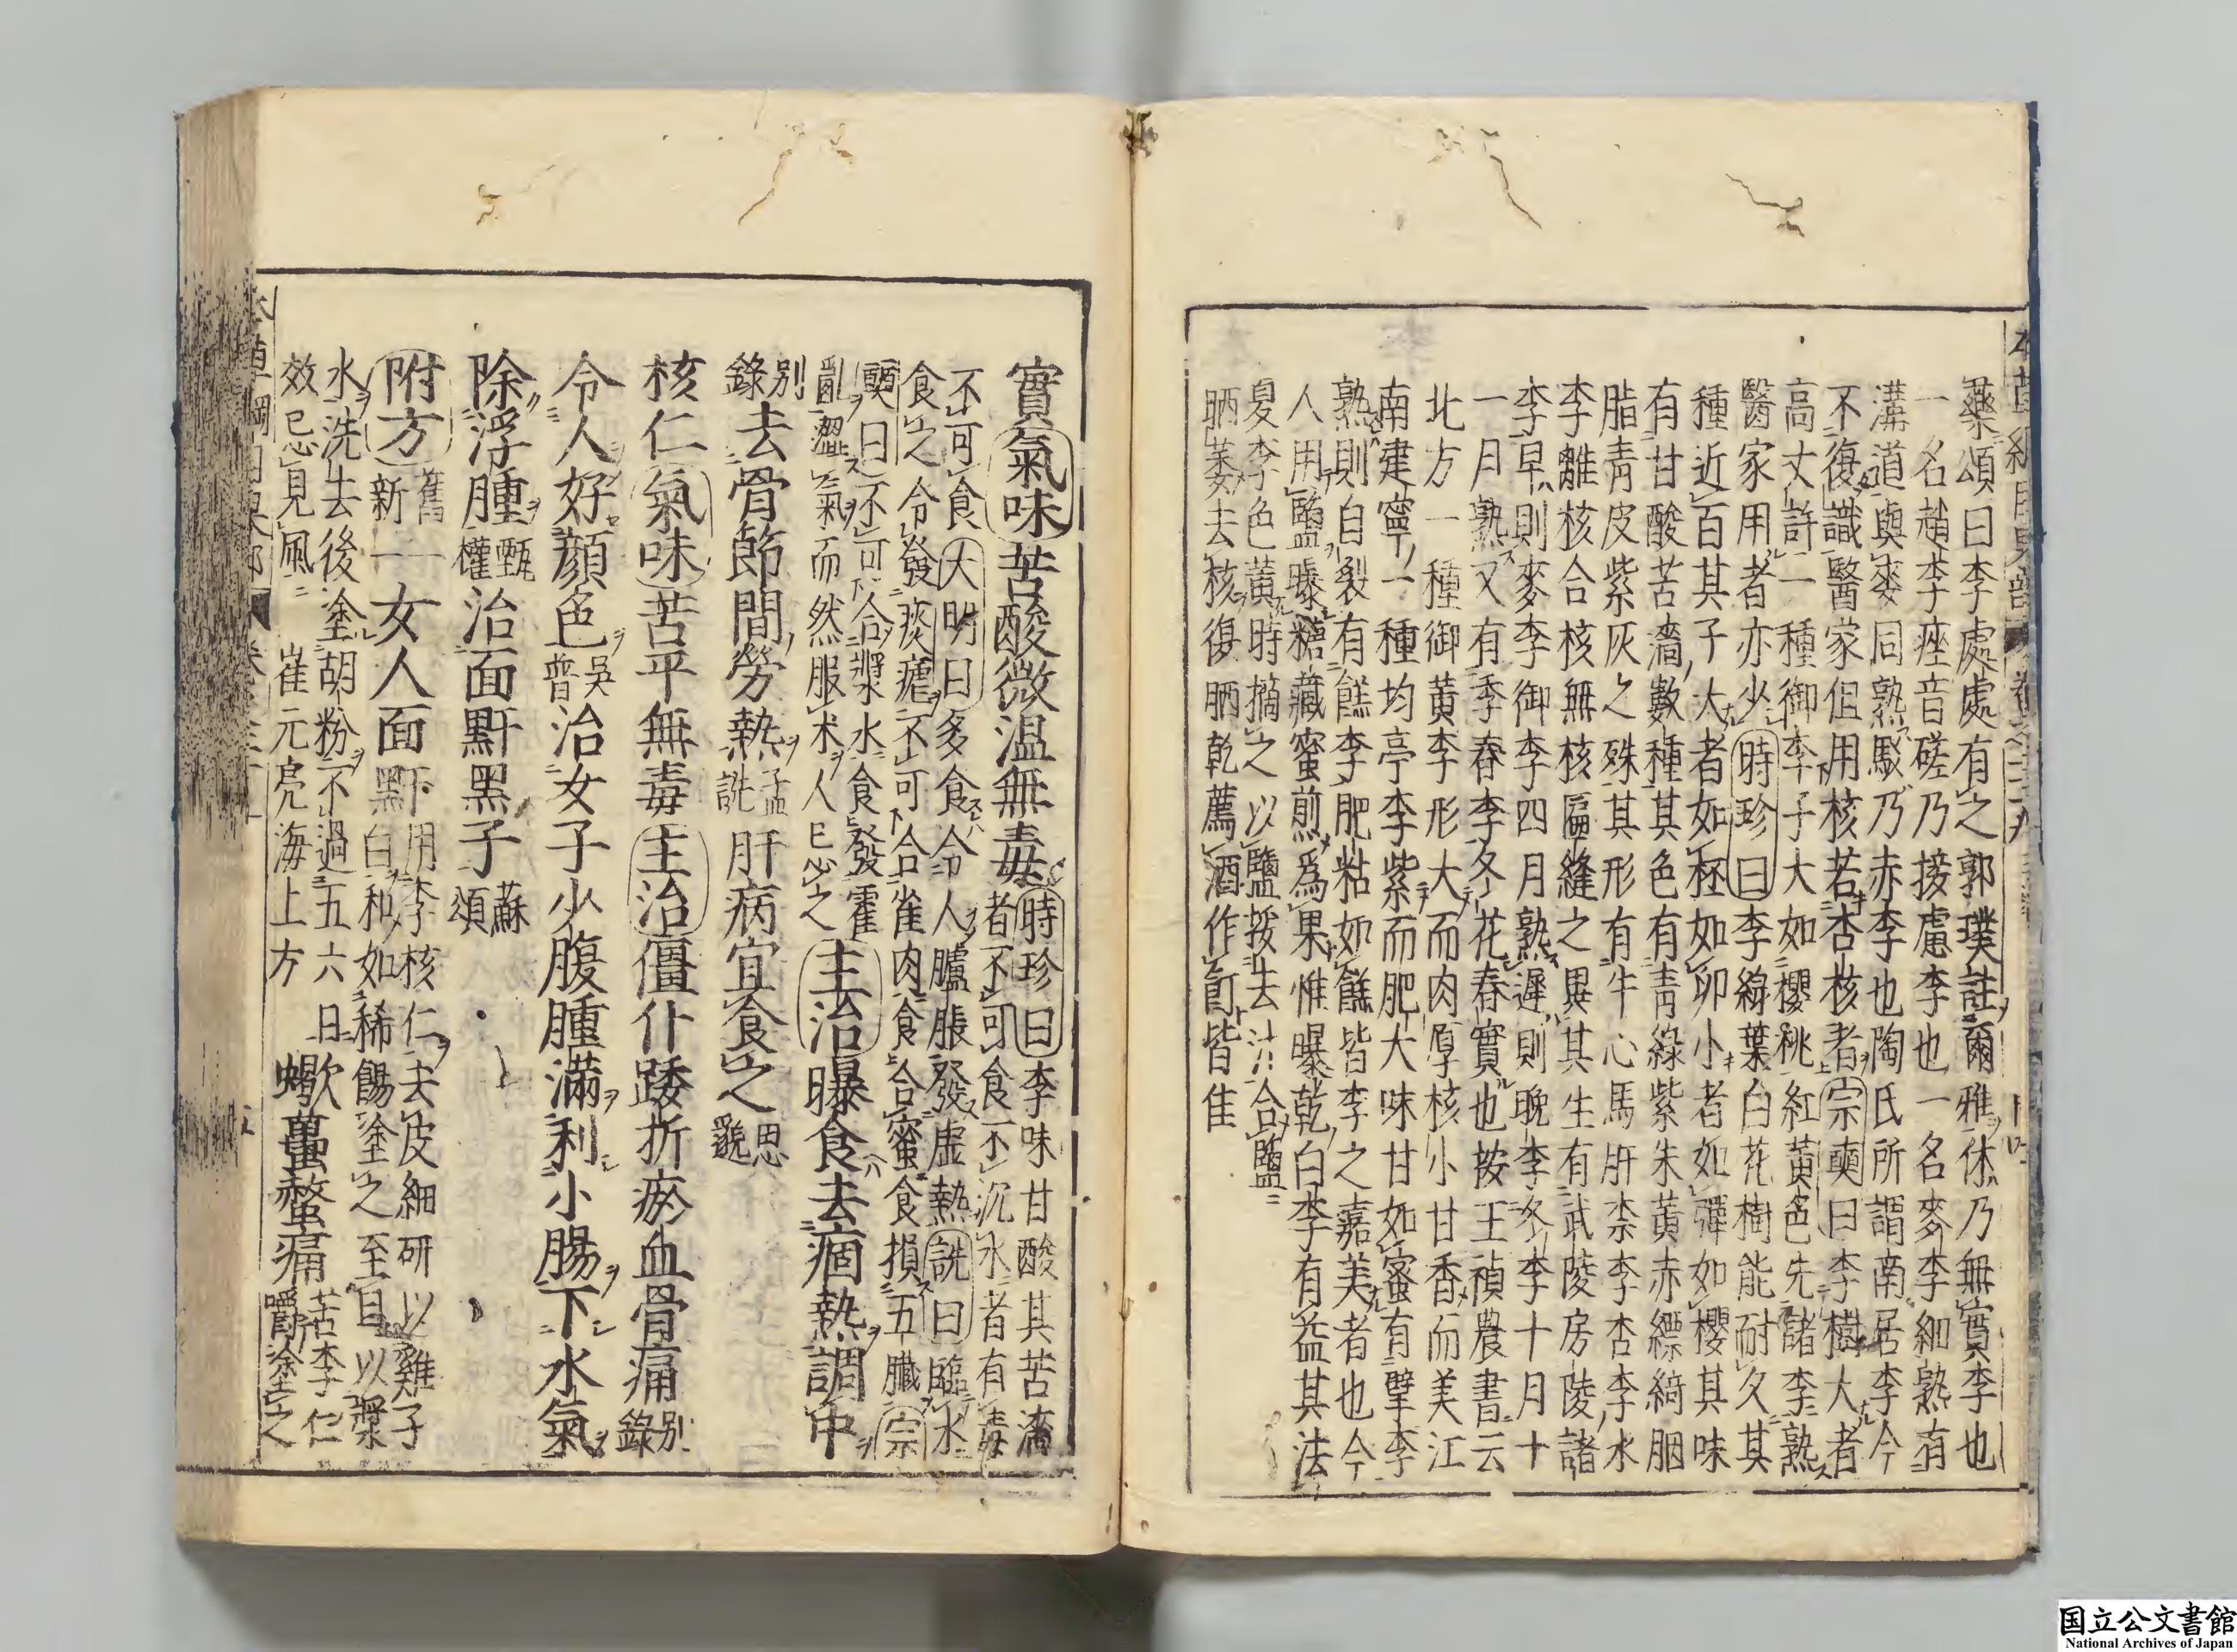 藥頌曰李處處有之郭璞註爾雅休乃無實李也
一名趙李痤音磋乃接慮李也一名麥李細熟有
溝道與麥同熟駁乃赤李也陶氏所謂南居李今
不復識醫家但用核若杏核者宗奭曰李樹大者
高丈許一種御李子大如櫻桃紅黃色先諸李熟
醫家用者亦少時珍曰李綠葉白花樹能耐久其
種近百其子大者如杯如卵小者如彈如櫻其味
有甘酸苦濇數種其色有青綠紫朱黃赤縹綺胭
脂青皮紫灰之殊其形有牛心馬肝柰李杏李水
李離核合核無核匾縫之異其生有武陵房陵諸
李早則麥李御李四月熟遲則晚李冬李十月十
一月熟又有季春李冬花春實也按王禎農書云
北方一種御黃李形大而肉厚核小甘香而美江
南建寧一種均亭李紫而肥大味甘如蜜有擘李
熟則自裂有餻李肥粘如餻皆李之嘉美者也今
人用鹽曝糖藏蜜煎爲果惟曝乾白李有益其法
夏李色黃時摘之以鹽挼去汁合鹽
晒萎去核復晒乾薦酒作飣皆佳
實氣味苦酸微溫無毒時珍曰李味甘酸其苦濇
者不可食不沉水者有毒
不可食大明曰多食令人臚脹發虛熱詵曰臨水
食之令發痰瘧不可合雀肉食合蜜食損五臟宗
奭曰不可合漿水食發霍
亂澀氣而然服朮人忌之主治曝食去痼熱調中
別錄去骨節間勞熱孟詵肝病宜食之思邈
核仁氣味苦平無毒主治僵仆踒折瘀血骨痛別錄
令人好顏色吳普治女子少腹腫滿利小腸下水氣
除浮腫甄權治面䵟黑子蘇頌
附方舊一新一女人面䵟用李核仁去皮細研以雞子
白和如稀餳塗之至旦以漿
水洗去後塗胡粉不過五六日
效忌見風崔元亮海上方蠍蠆螫痛苦李仁
嚼塗之
国立公文書館
National Archives of Japan